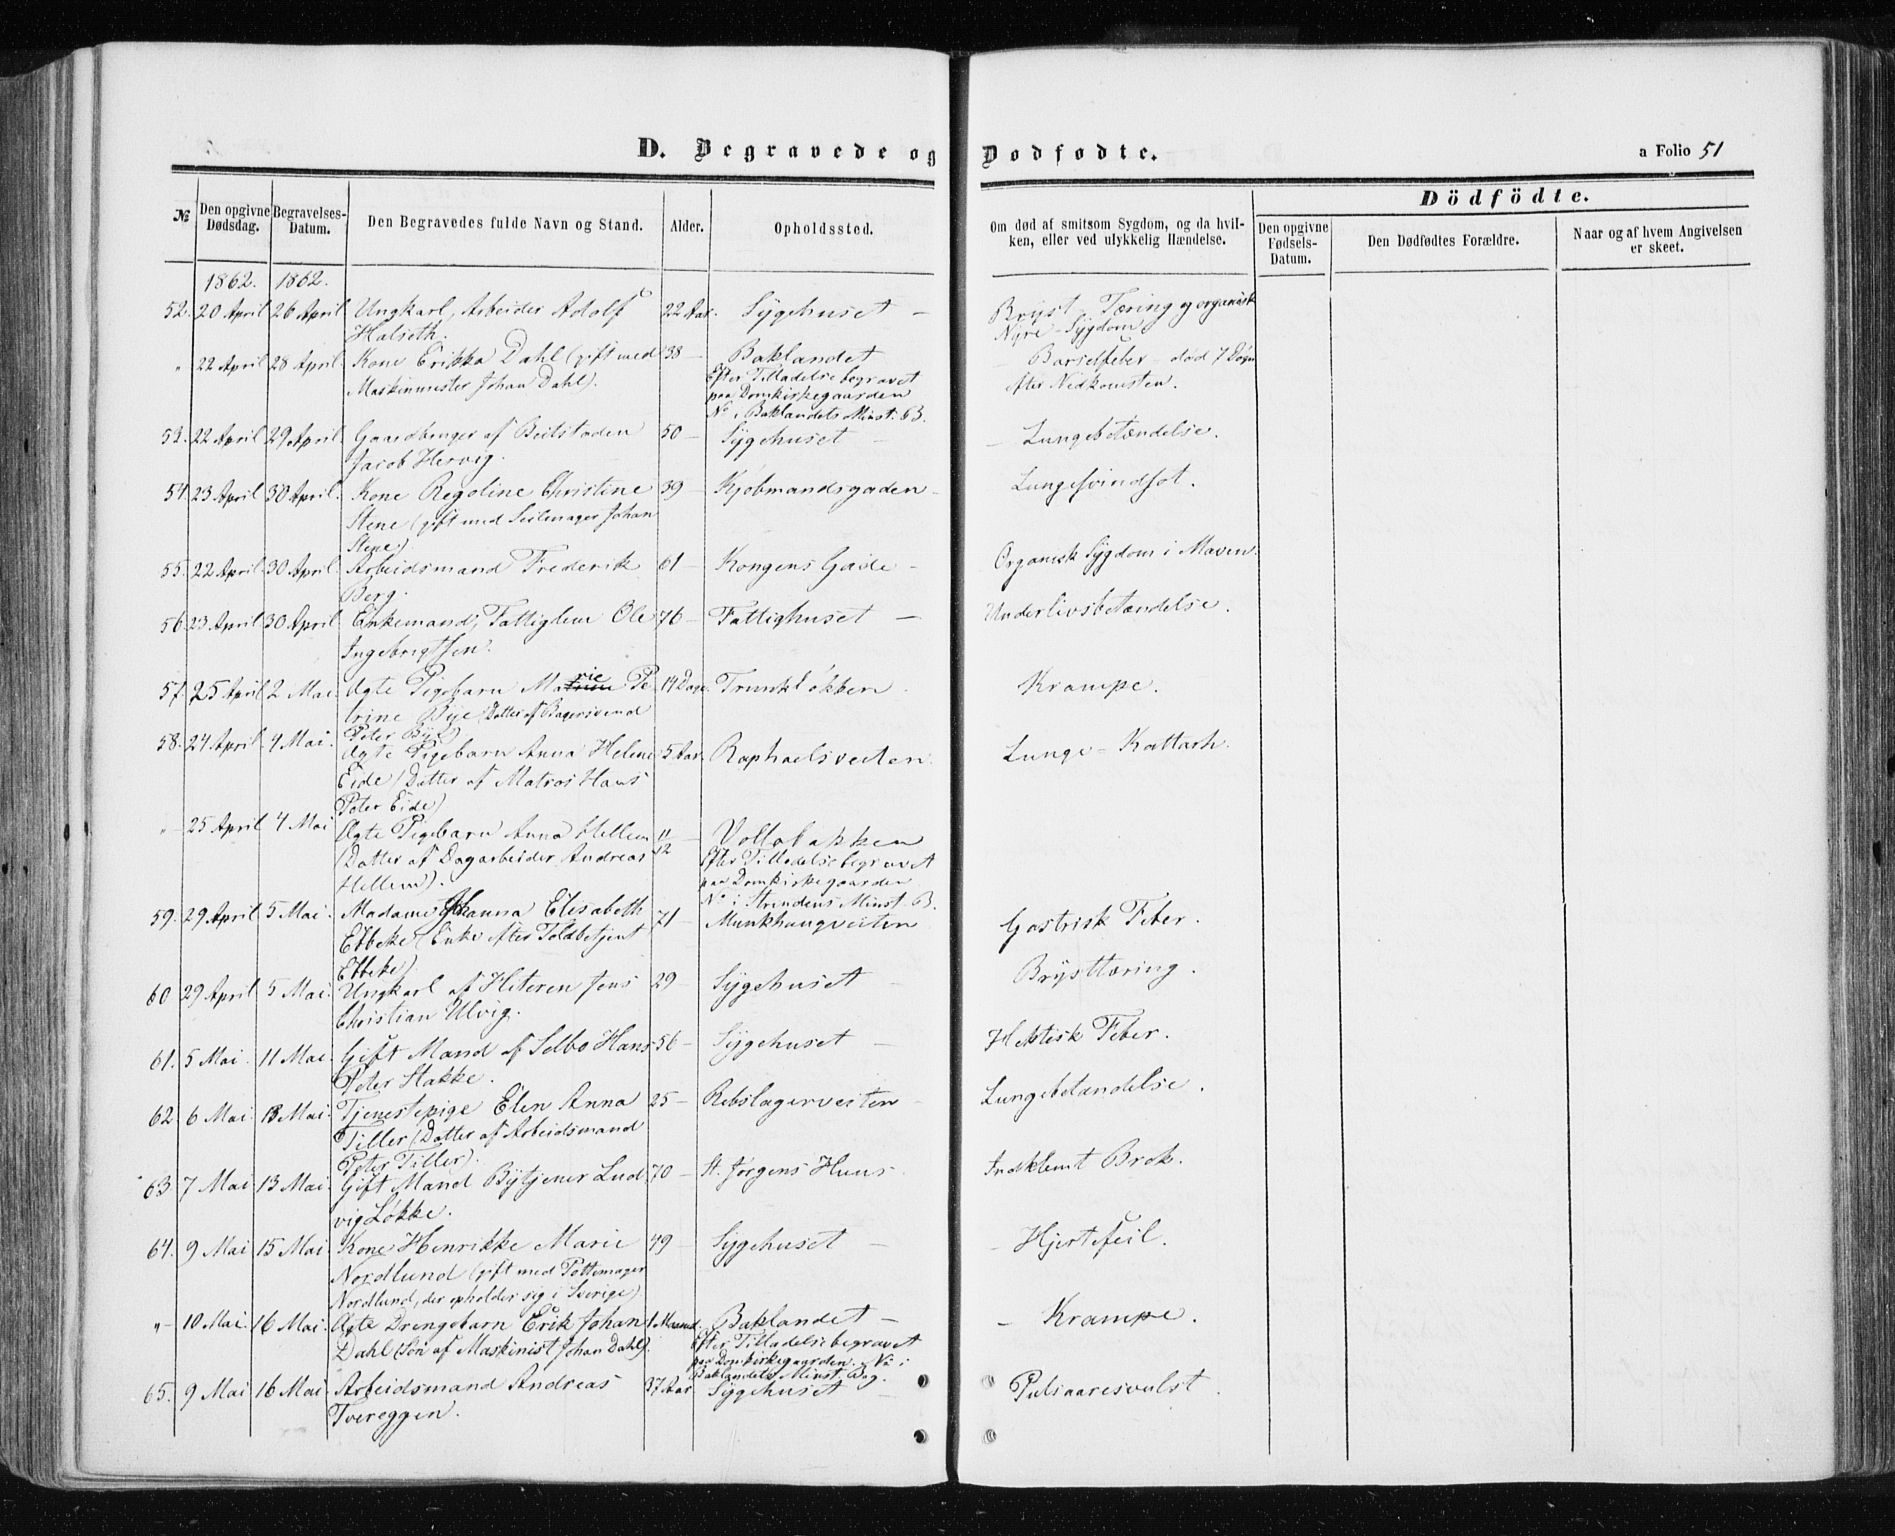 D. Begravede og Dødfødte.
a Folio 51
№
Den opgivne Dødsdag.
Begravelses-Datum.
Den Begravedes fulde Navn og Stand.
Alder.
Opholdssted.
Om død af smitsom Sygdom, og da hvilken, eller ved ulykkelig Hændelse.
Dödfödte.
Den opgivne Fødsels-Datum.
Den Dødfødtes Forældre.
Naar og af hvem Angivelsen er skeet.
1862. 1862.
52. 20 April 26 April Ungkarl, Arbeider Adolf 22 Aar. Sygehuset — Bryst-Tæring og organisk
Halseth. Nyre-Sygdom
" 22 April 28 April. Kone Erikka Dahl (gift med 38 — Baklandet — Barselfeber — død 7 Døgn
Maskinmester Johan Dahl). Efter Tilladelse begravet efter Nedkomsten.
paa Domkirkegaarden
No i Baklandets Minst. B.
53. 22 April 29 April. Gaardbruger af Beitstaden 50 — Sygehuset — — Lungebetændelse.
Jacob Hervig.
54. 23 April 30 April. Kone Regoline Christine 39 — Kjøbmandsgaden — Lungesvindsot.
Stene (gift med Seilmager Johan
Stene)
55. 22 April. 30 April. Arbeidsmand Frederik 61 — Kongens Gade — Organisk Sygdom i Maven.
Berg.
56. 23 April 30 April Enkemand, Fattiglem Ole 76 — Fattighuset — Underlivsbetændelse.
Ingebrigtsen.
57. 25 April 2 Mai Ægte Pigebarn Marie Pe 14 Dage. Trunkløkken Krampe.
trine Bye (Datter af Bagersvend
Peter Bye)
58. 24 April. 4 Mai. Ægte Pigebarn Anna Helene 5 Aar. Raphaelsveiten. Lunge-Kattarh.
Eide (Datter af Matros Hans
Peter Eide)
" 25 April 4 Mai Ægte Pigebarn Anna Hellem 11/12 — Vollabakken
(Datter af Dagarbeider Andreas Efter Tilladelse begravet
Hellem). paa Domkirkegaarden
No i Strindens Minst. B.
59. 29 April 5 Mai. Madame Johanna Elisabeth 71 — Munkhaugveiten Gastrisk Feber.
Ebbeke (Enke efter Toldbetjent
Ebbeke)
60 29 April 5 Mai. Ungkarl af Hiteren Jens 29 — Sygehuset — Brysttæring.
Christian Ulvig.
61. 5 Mai. 11 Mai Gift Mand af Selbo Hans 56 — Sygehuset — Hektisk Feber.
Peter Stakke.
62 6 Mai. 13 Mai. Tjenestepige Elen Anna 25 — Rebslagerveiten — Lungebetændelse.
Tiller (Datter af Arbeidsmand
Peter Tiller).
63 7 Mai 13 Mai. Gift Mand Bytjener Lud 70 — St. Jørgens Huus. Indklemt Brok.
vig Løkke.
64. 9 Mai 15 Mai Kone Henrikke Marie 49 — Sygehuset — — Hjertefeil.
Nordlund (gift med Pottemager
Nordlund, der opholder sig i Sverige)
" 10 Mai. 16 Mai. Ægte Drengebarn Erik Johan 1 Maaned. Baklandet — — Krampe.
Dahl (Søn af Maskinist Johan Dahl). Efter Tilladelse begravet
paa Domkirkegaarden. No i
Baklandets Minst. Bog.
65. 9 Mai 16 Mai Arbeidsmand Andreas 37 Aar Sygehuset — Pulsaaresvulst.
Tvereggen.